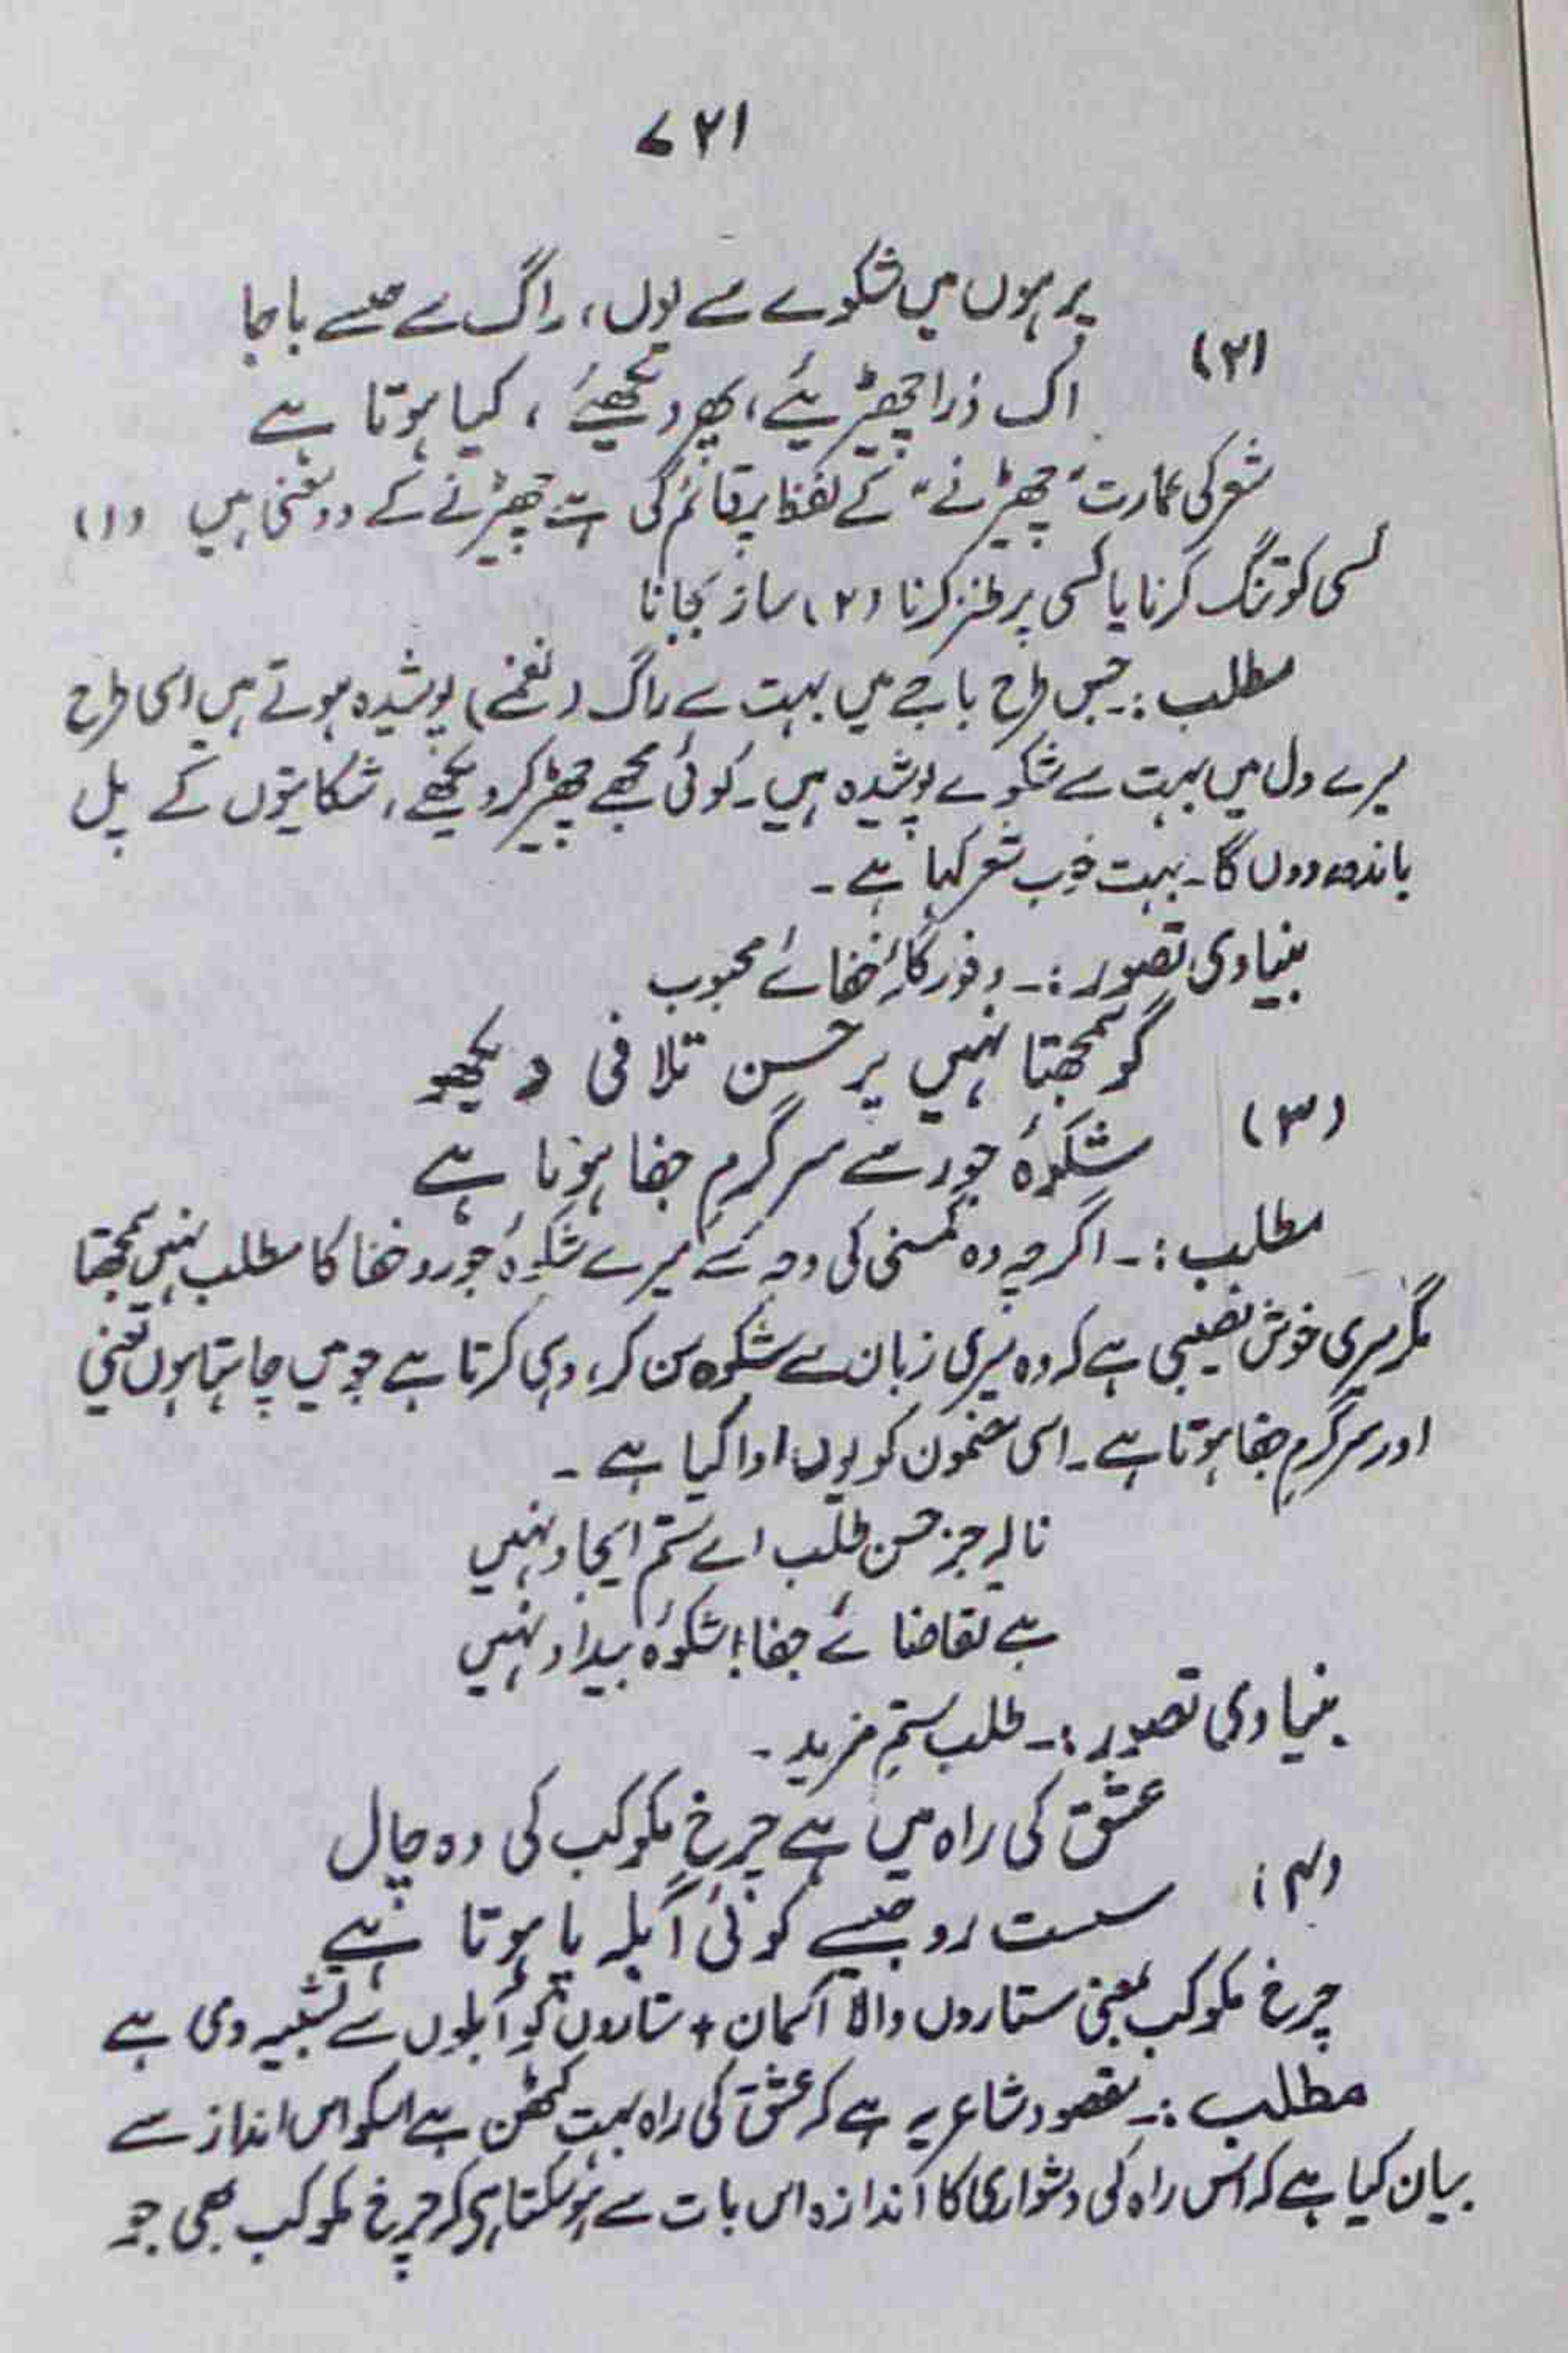 ۷۲۱
پر ہوں میں شکوے سے یوں، راگ سے جیسے باجا
(۲)
اک ذرا چھیڑیئے، پھر دیکھیئے، کیا ہوتا ہے
شعر کی عمارت "چھیڑنے" کے لفظ پر قائم کی ہے چھیڑنے کے دو معنی ہیں (۱)
کسی کو تنگ کرنا یا کسی پر طنز کرنا (۲) ساز بجانا
مطلب:۔ جس طرح باجے میں بہت سے راگ (نغمے) پوشیدہ ہوتے ہیں اسی طرح
میرے دل میں بہت سے شکوے پوشیدہ ہیں۔ کوئی مجھے چھیڑ کر دیکھے، شکایتوں کے پل
باندھ دوں گا۔ بہت خوب شعر کہا ہے۔
بنیادی تصور:۔ وفور گلۂ جفائے محبوب
گو سمجھتا نہیں پر حسن تلافی دیکھو
(۳)
شکوۂ جور سے سرگرمِ جفا ہوتا ہے
مطلب:۔ اگرچہ وہ کمسنی کی وجہ سے میرے شکوۂ جور و جفا کا مطلب نہیں سمجھتا
مگر میری خوش نصیبی ہے کہ وہ میری زبان سے شکوہ سن کر، وہی کرتا ہے جو میں چاہتا ہوں یعنی
اور سرگرمِ جفا ہوتا ہے۔ اسی مضمون کو یوں ادا کیا ہے۔
نالہ جز حسن طلب اے ستم ایجاد نہیں
ہے تقاضائے جفا، شکوۂ بیداد نہیں
بنیادی تصور:۔ طلب ستمِ مزید۔
عشق کی راہ میں ہے چرخِ مکوکب کی وہ چال
(۴)
سست رو جیسے کوئی آبلہ پا ہوتا ہے
چرخ مکوکب بمعنی ستاروں والا آسمان + ستاروں کو آبلوں سے تشبیہ دی ہے
مطلب:۔ مقصود شاعر یہ ہے کہ عشق کی راہ بہت کٹھن ہے اسکو اس انداز سے
بیان کیا ہے کہ اس راہ کی دشواری کا اندازہ اس بات سے ہو سکتا ہی کہ چرخ مکوکب بھی جو